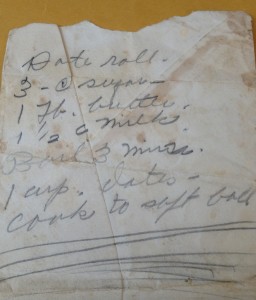 Date roll.
3 - C sugar -
1 Tb. butter.
1 1/2 c milk.
Boil 3 mins.
1 cup. dates -
cook to soft ball